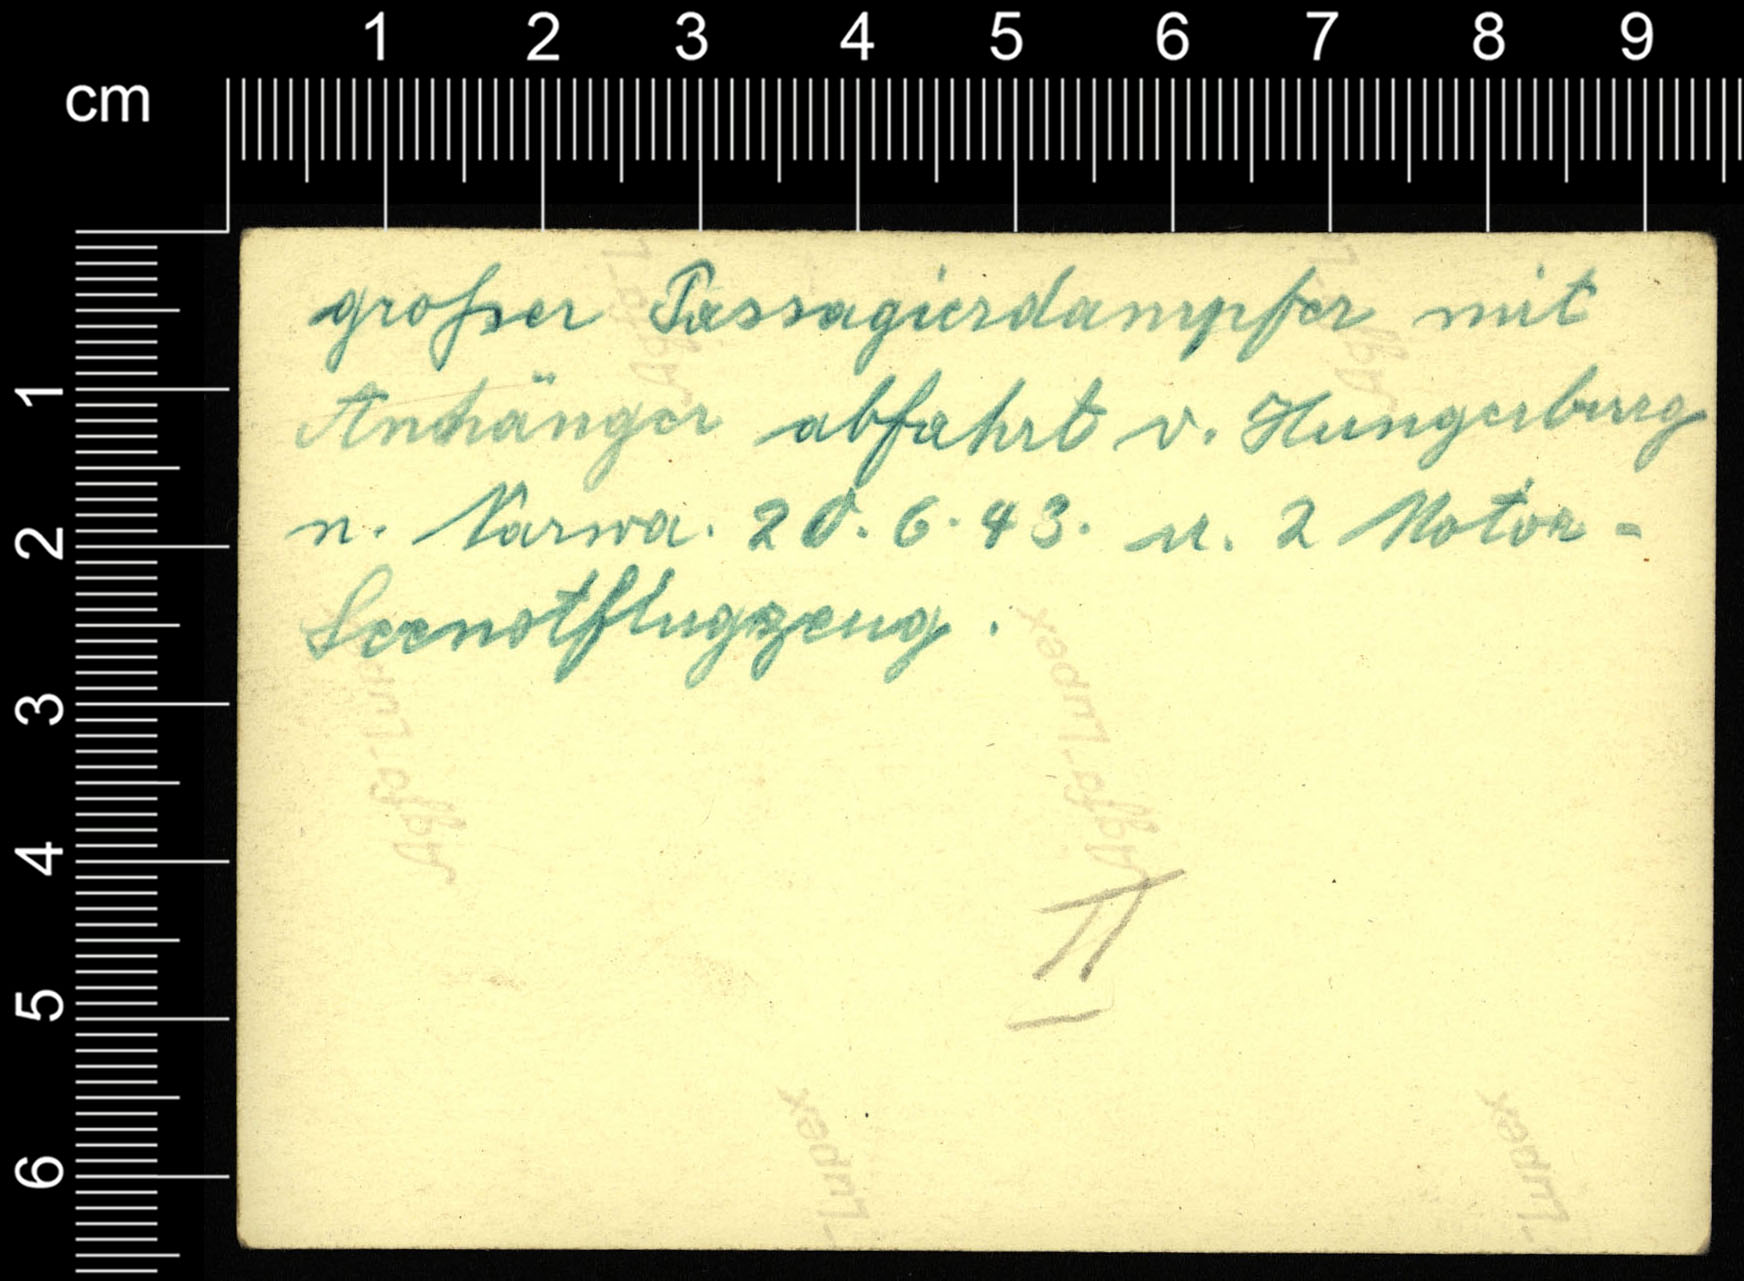 1 2 3 4 5 6 7 8 9
cm
großer Passagierdampfer mit
Anhänger abfahrt v. Hungerburg
n. Narwa. 20. 6. 43. u. 2 Motor-
Seenotflugzeug.
Agfa-Lupex
Agfa-Lupex
II
-Lupex
-Lupex
1
2
3
4
5
6